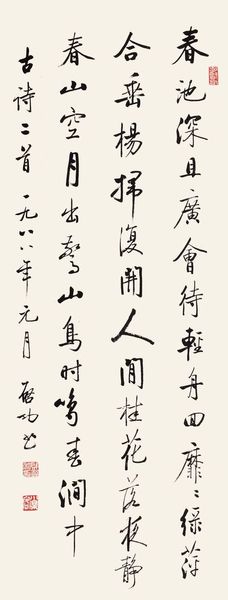 春池深且廣會待輕舟回靡〻綠萍
合垂楊掃復開人閒桂花落夜靜
春山空月出驚山鳥时鳴春澗中
古诗二首 一九八八年元月 啓功书